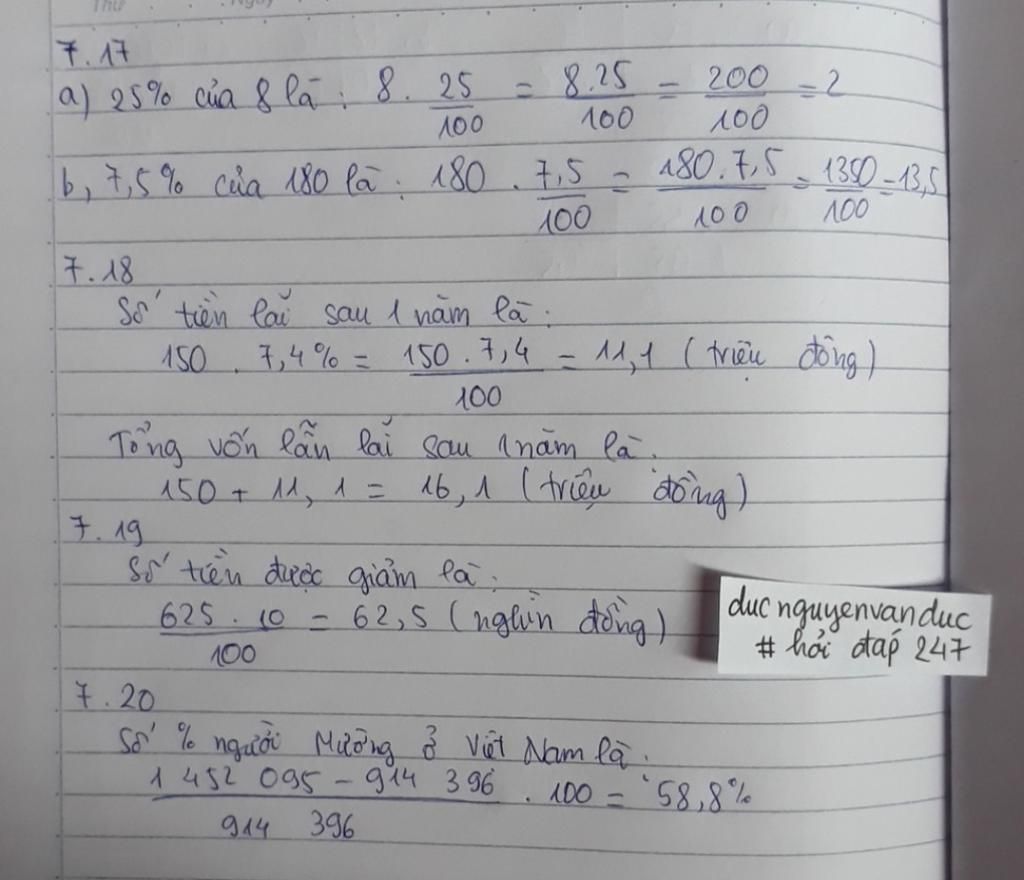 Thứ Ngày
7.17
a) 25% của 8 là : 8 . 25/100 = 8.25/100 = 200/100 = 2
b, 7,5% của 180 là : 180 . 7,5/100 = 180.7,5/100 = 1350/100 = 13,5
7.18
Số tiền lãi sau 1 năm là :
150 . 7,4% = 150 . 7,4/100 = 11,1 (triệu đồng)
Tổng vốn lẫn lãi sau 1 năm là :
150 + 11,1 = 16,1 (triệu đồng)
7.19
Số tiền được giảm là :
625 . 10/100 = 62,5 (nghìn đồng)
ducnguyenvanduc
# hỏi đáp 247
7.20
Số % người Mường ở Việt Nam là :
1 452 095 - 914 396/914 396 . 100 = 58,8%